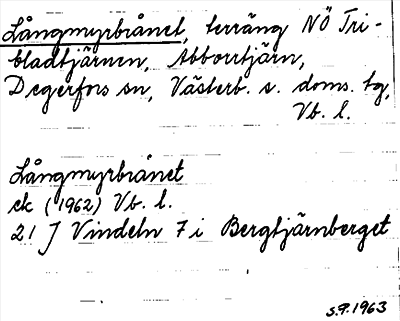 Långmyrbrånet, terräng NÖ Tri-
bladtjärnen, Abborrtjärn,
Degerfors sn, Västerb. s. doms. tg,
Vb. l.
Långmyrbrånet
ek (1962) Vb. l.
21 J Vindeln 7 i Bergtjärnberget
s.9.1963